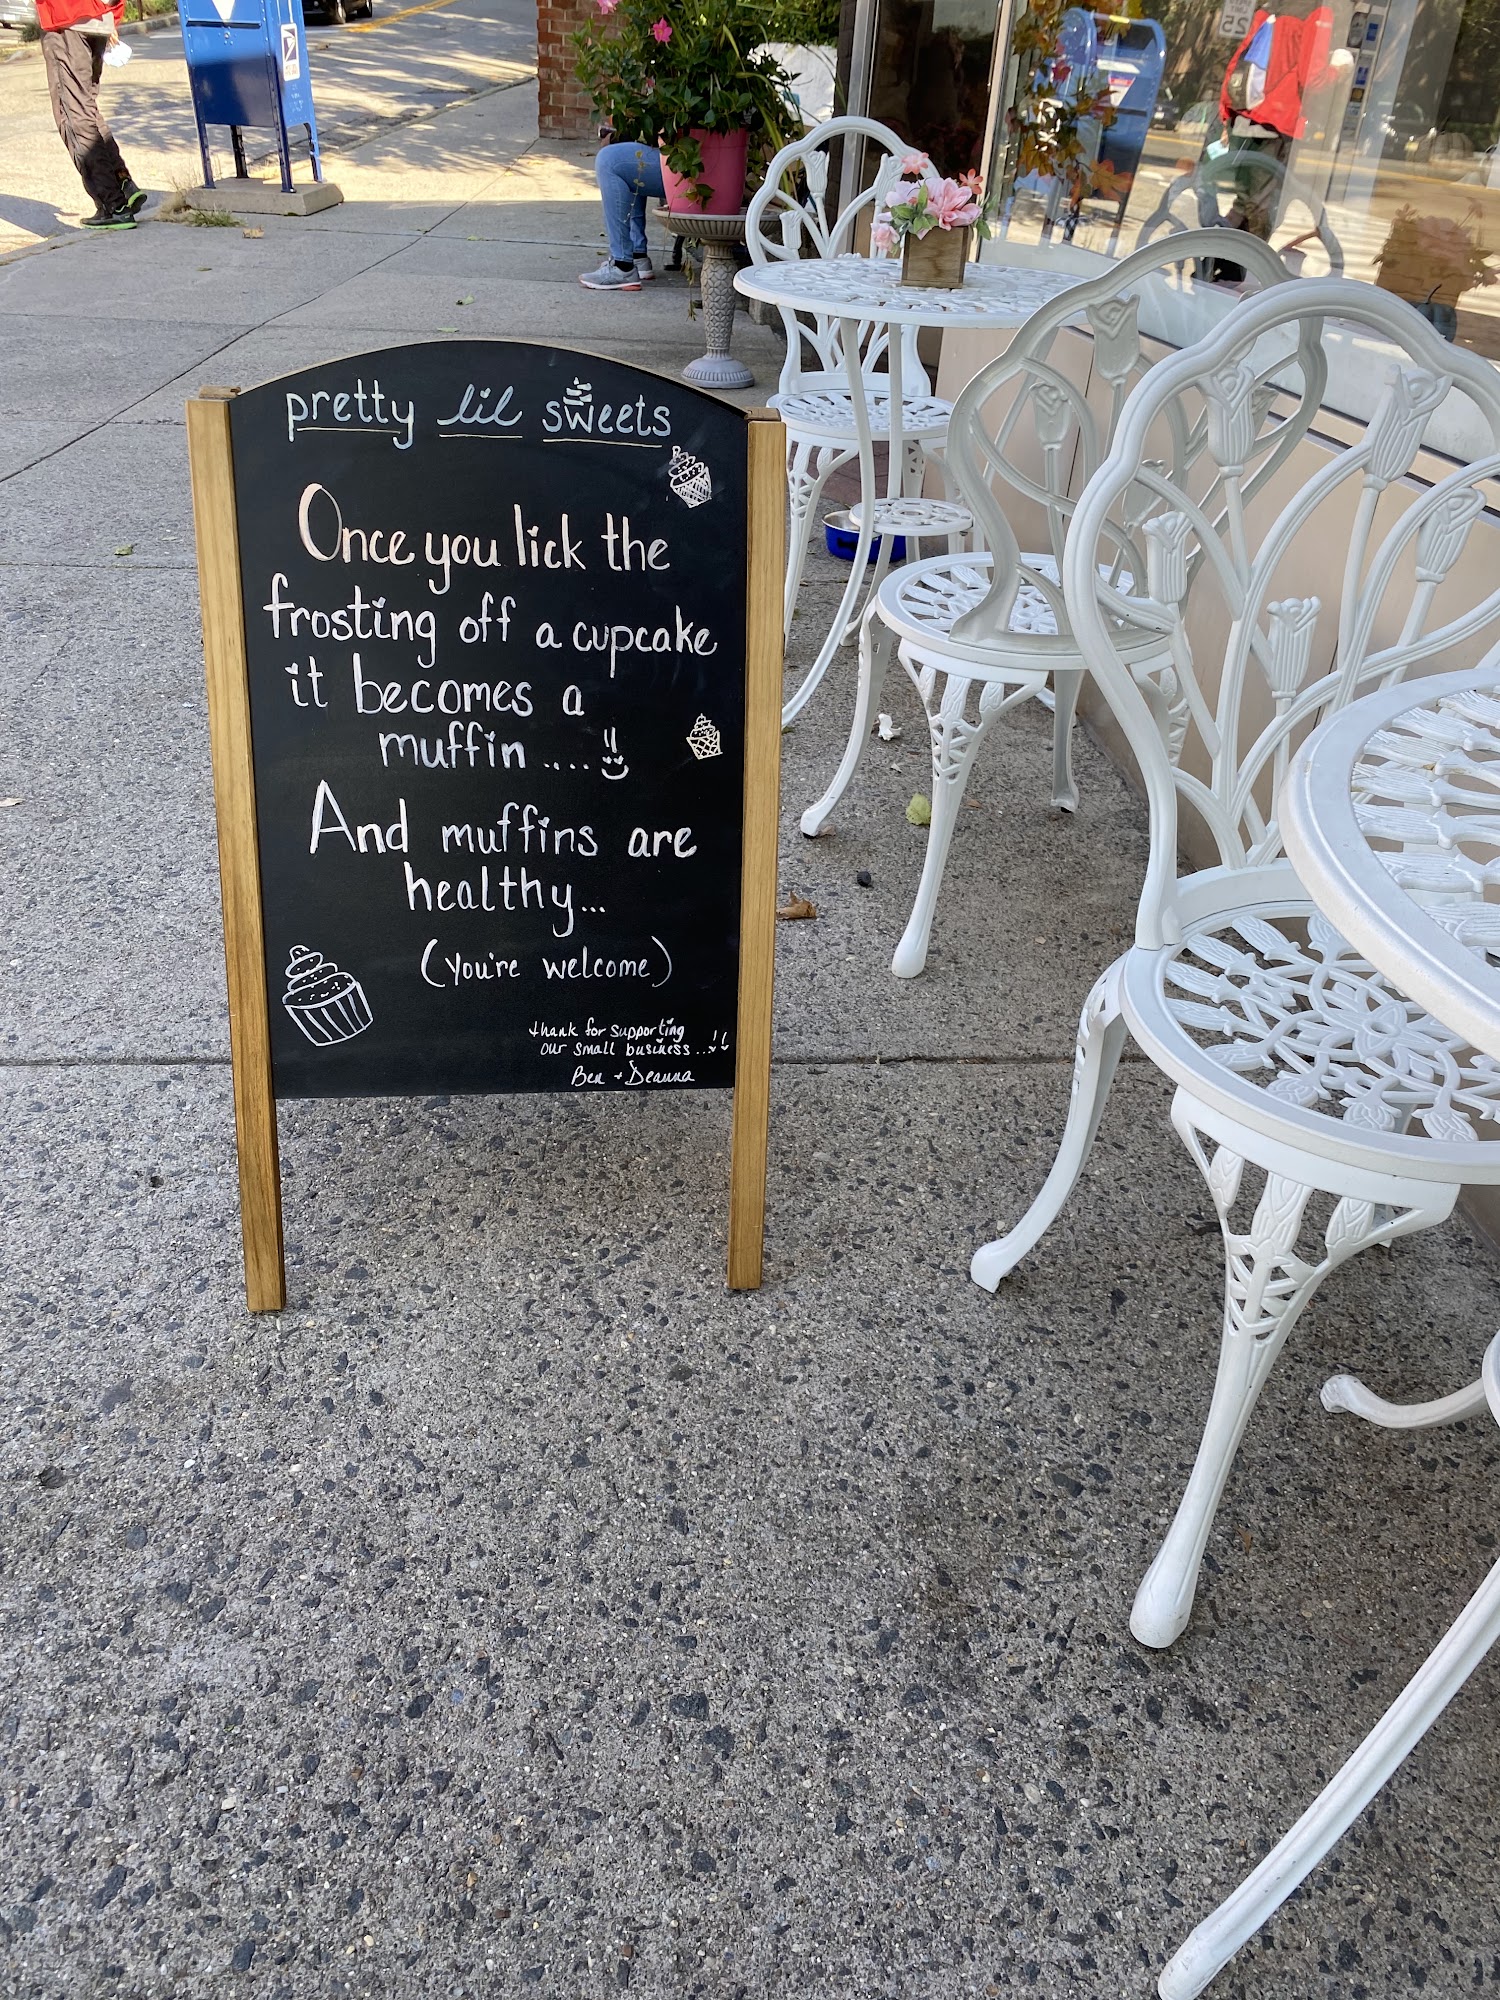 pretty lil sweets
Once you lick the
frosting off a cupcake
it becomes a
muffin....!!
And muffins are
healthy...
(you're welcome)
thank for supporting
our small business...!!
Ben + Deanna
25